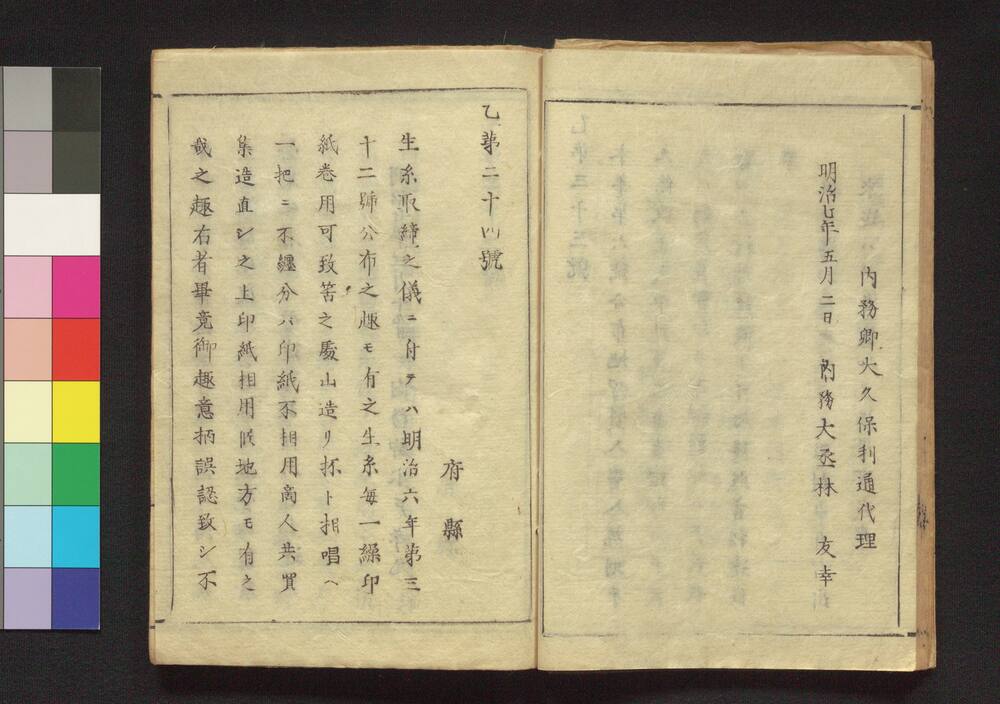 內務卿大久保利通代理
明治七年五月二日 內務大丞林 友幸
乙第二十四號
府縣
生糸取締之儀ニ付テハ明治六年第三
十二號公布之趣モ有之生糸每一繰印
紙卷用可致筈之處山造リ抔ト相唱ヘ
一把ニ不纏分ハ印紙不相用商人共買
集造直シ之上印紙相用候地方モ有之
哉之趣右者畢竟御趣意柄誤認致シ不